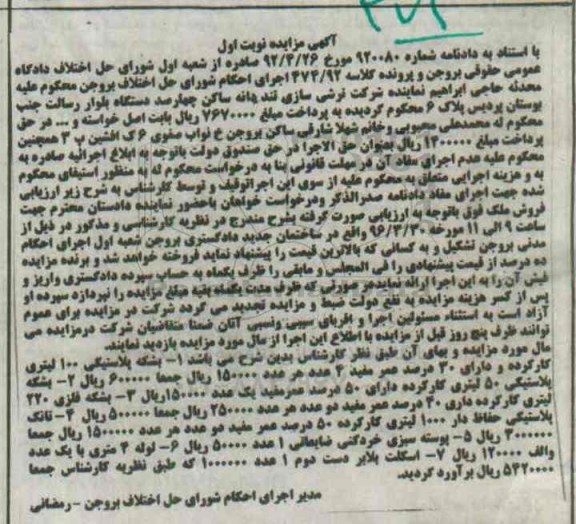 آگهی مزایده نوبت اول
با استناد به دادنامه شماره ۹۲۰۰۸۰ مورخ ۹۲/۴/۲۶ صادره از شعبه اول شورای حل اختلاف دادگاه
عمومی حقوقی بروجن و پرونده کلاسه ۴۷۴/۹۲ اجرای احکام شورای حل اختلاف بروجن محکوم علیه
محدثه حاجی ابراهیم نماینده شرکت ترشی سازی تند دانه ساکن چهارصد دستگاه بلوار رسالت جنب
بوستان پردیس پلاک ۶ محکوم گردیده به پرداخت مبلغ ۷۶۷۰۰۰۰ ریال بابت اصل خواسته و ... در حق
محکوم له محمدعلی محبوبی وخانم شهلا شارقی ساکن بروجن خ نواب صفوی ک ۶ افشین پ ۳ همچنین
پرداخت مبلغ ۱۳۰۰۰۰۰ ریال بعنوان حق الاجرا در حق صندوق دولت باتوجه به ابلاغ اجرائیه صادره به
محکوم علیه عدم اجرای مفاد آن در مهلت قانونی بنا به درخواست محکوم له به منظور استیفای محکوم
به و هزینه اجرایی متعلق به محکوم علیه از سوی این اجراتوقیف و توسط کارشناس به شرح زیر ارزیابی
شده جهت اجرای مفاد دادنامه صدرالذکر ودرخواست خواهان باحضور نماینده دادستان محترم جهت
فروش ملک فوق باتوجه به ارزیابی صورت گرفته بشرح مندرج در نظریه کارشناسی و مذکور در ذیل از
ساعت ۹ الی ۱۱ مورخه ۹۶/۳/۳۰ واقع در ساختمان جدید دادگستری بروجن شعبه اول اجرای احکام
مدنی بروجن تشکیل و به کسانی که بالاترین قیمت را پیشنهاد نماید فروخته خواهد شد و برنده مزایده
ده درصد از قیمت پیشنهادی را فی المجلس و مابقی را ظرف یکماه به حساب سپرده دادگستری واریز و
فیش آن را به این اجرا ارائه نماید در صورتی که ظرف مدت یکماه بقیه مبلغ مزایده را نپردازد سپرده او
پس از کسر هزینه مزایده به نفع دولت ضبط و مزایده تجدید می گردد شرکت در مزایده برای عموم
آزاد است به استثناء مسئولین اجرا و اقربای سببی ونسبی آنان ضمنا متقاضیان شرکت درمزایده می
توانند ظرف پنج روز قبل از مزایده با اطلاع این اجرا از مال مورد مزایده بازدید نمایند.
مال مورد مزایده و بهای آن طبق نظر کارشناس بدین شرح می باشد ۱- بشکه پلاستیکی ۱۰۰ لیتری
کارکرده و دارای ۳۰ درصد عمر مفید ۴ عدد هر عدد ۱۵۰۰۰۰ ریال جمعا ۶۰۰۰۰۰ ریال ۲- بشکه
پلاستیکی ۵۰ لیتری کارکرده دارای ۵۰ درصد عمرمفید یک عدد ۱۵۰۰۰۰ریال ۳- بشکه فلزی ۲۲۰
لیتری کارکرده داری ۴۰ درصد عمر مفید دو عدد هر عدد ۲۵۰۰۰۰ ریال جمعا ۵۰۰۰۰۰ ریال ۴- تانک
پلاستیکی حفاظ دار ۱۰۰۰ لیتری کارکرده ۵۰ درصد عمر مفید دو عدد هر عدد ۱۵۰۰۰۰۰ ریال جمعا
۳۰۰۰۰۰۰ ریال ۵- پوسته سبزی خردکنی ضایعاتی ۱ عدد ۵۰۰۰۰ ریال ۶- لوله ۴ متری با یک عدد
والف ۱۲۰۰۰۰ ریال ۷- اسکلت بلابر دست دوم ۱ عدد ۱۰۰۰۰۰۰ که طبق نظریه کارشناس جمعا
۵۴۲۰۰۰۰ ریال برآورد گردید.
مدیر اجرای احکام شورای حل اختلاف بروجن -رمضانی